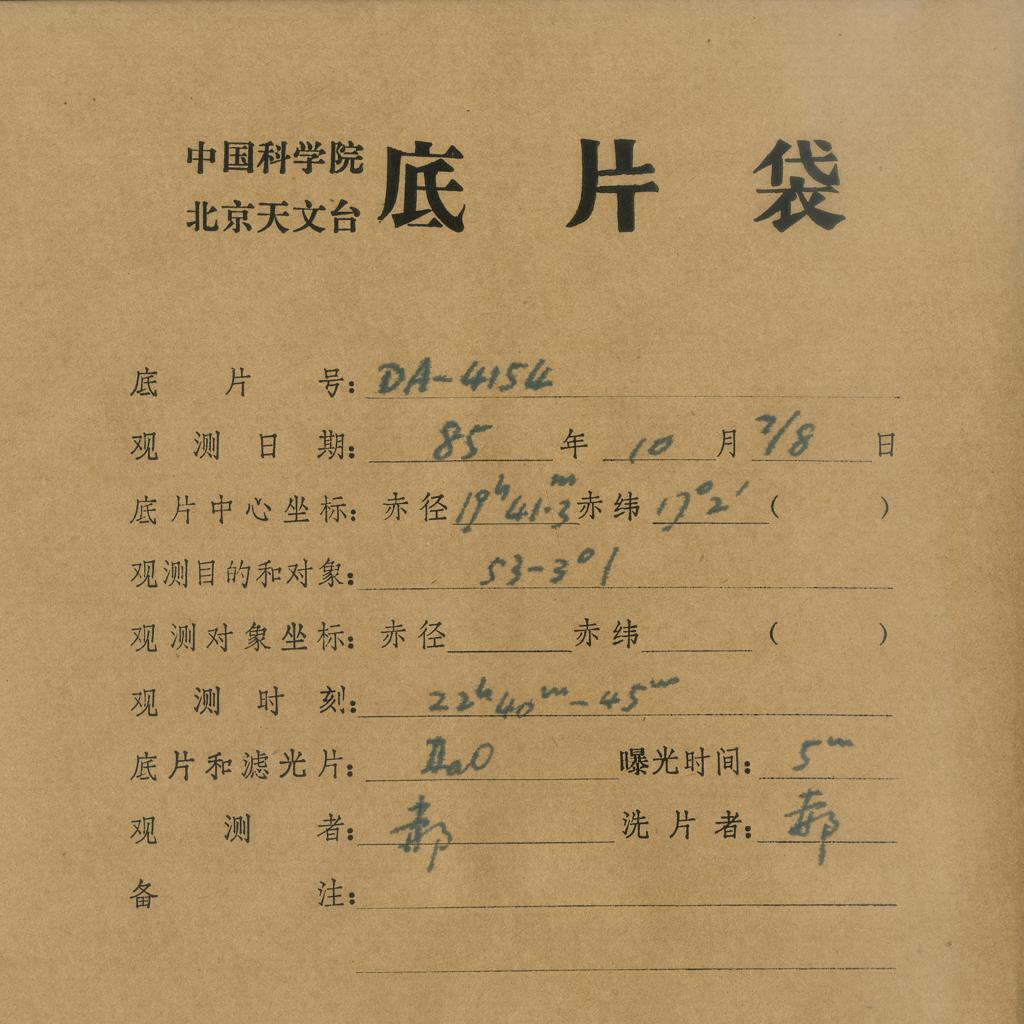 中国科学院
北京天文台
底片袋
底片号：DA-4154
观测日期：85年10月7/8日
底片中心坐标：赤径19ʰ41.3ᵐ赤纬17°2′（　）
观测目的和对象：53-3°1
观测对象坐标：赤径　赤纬　（　）
观测时刻：22ʰ40ᵐ-45ᵐ
底片和滤光片：ⅡaO　曝光时间：5ᵐ
观测者：郝　洗片者：郝
备注：